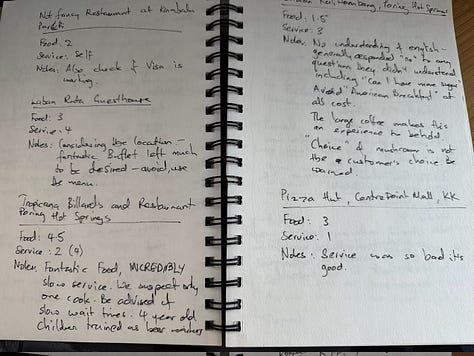 Not fancy Restaurant at Kinabalu
Park
Food: 2
Service: Self
Notes: Also check if Visa is
working.
Laban Rata Guesthouse
Food: 3
Service: 4
Notes: Considering the location -
fantastic Buffet left much
to be desired - avoid, use
the menu.
Tropicana Billards and Restaurant
Poring Hot Springs
Food: 4.5
Service: 2 (4)
Notes: Fantastic Food, INCREDIBLY
slow service. We suspect only
one cook. Be advised of
slow wait times. 4 year old
Children trained as beer
Poring Hot Springs
Food: 1.5
Service: 3
Notes: No understanding of english -
generally responded "no" to any
question they didn't understand
including "Can I have more sugar"
Avoid "American Breakfast" at
all cost.
The large coffee makes this
an experience to behold.
"Choice" of mushrooms is not
the customer's choice be
warned.
Pizza Hut, CentrePoint Mall, KK
Food: 3
Service: 1
Notes: Service was so bad it's
good.